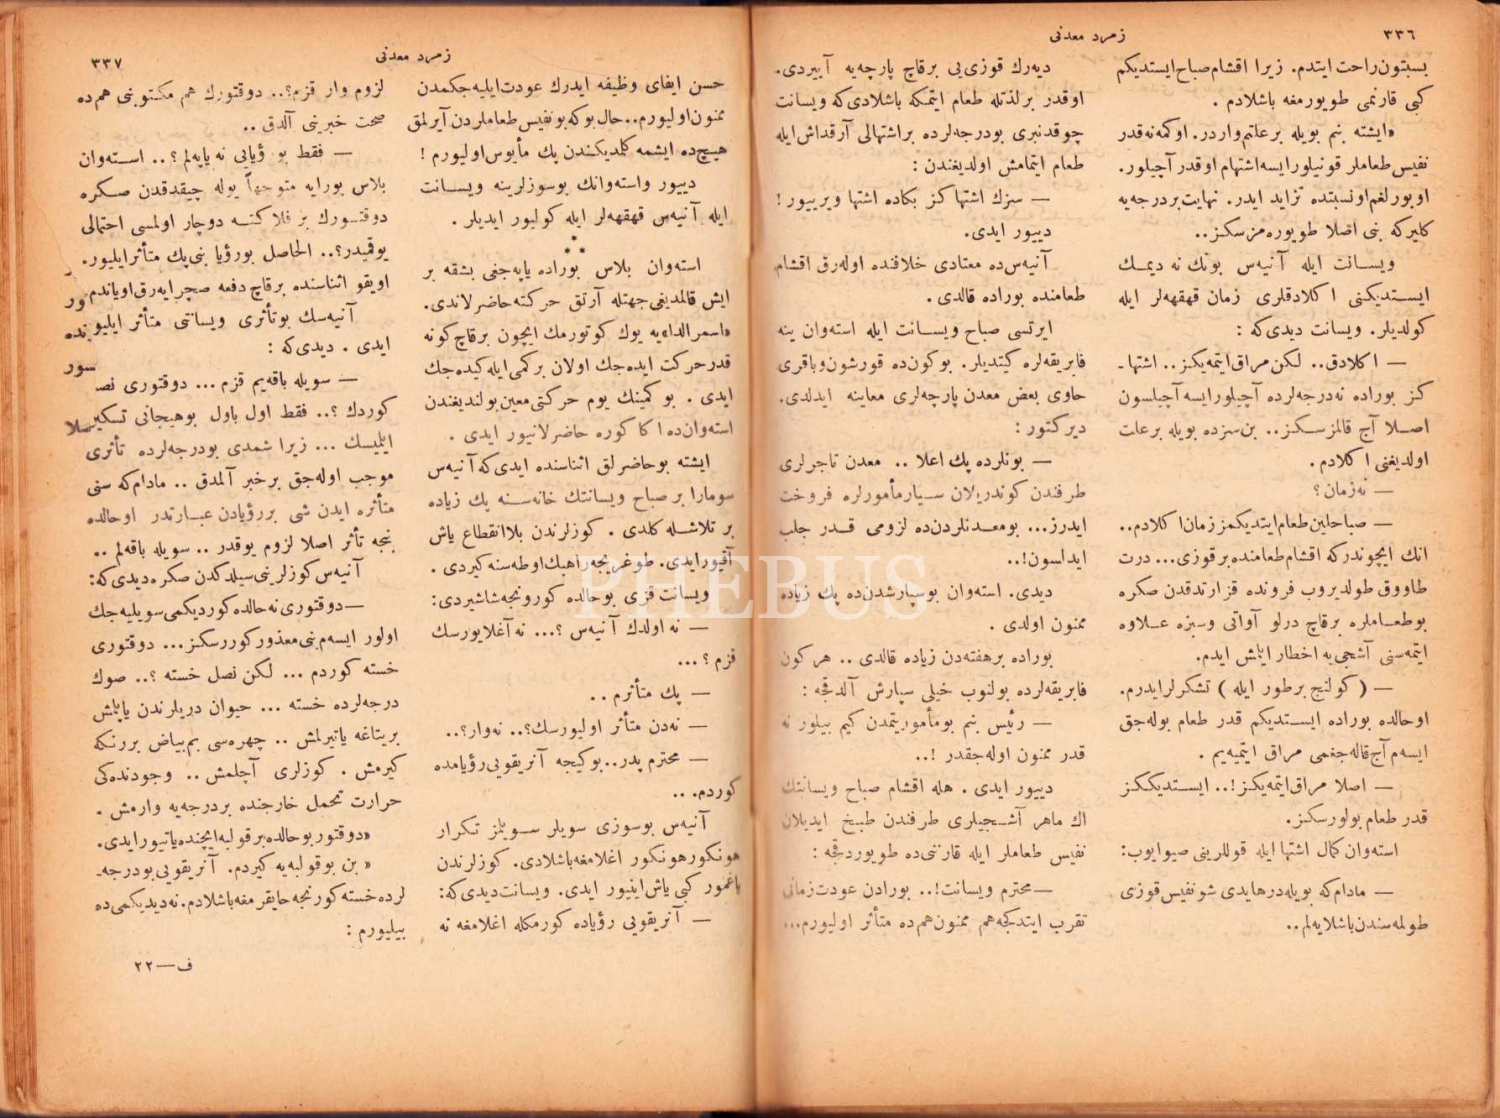 ٣٣٦
زمرد معدنی
بسبتون راحت ایتدم. زیرا اقشام صباح ایستدیکم
کبی قارنمی طویورمغه باشلادم .
«ایشته بنم بویله برعلتم واردر. اوکمه نه قدر
نفیس طعاملر قونیلورایسه اشتهام اوقدر آچیلور.
اوبورلغم اونسبتده تزاید ایدر. نهایت بر درجه یه
کلیرکه بنی اصلا طویوره مزسکز..
ویسانت ایله آنیه س بونك نه دیمك
ایستدیکنی اکلادقلری زمان قهقهه لر ایله
کولدیلر. ویسانت دیدی که :
— اکلادق.. لکن مراق ایتمه یکز.. اشتها۔
کز بوراده نه درجه لرده آچیلور ایسه آچیلسون
اصلا آج قالمز سکز.. بن سزده بویله برعلت
اولدیغنی اکلادم.
— نه زمان ؟
— صباحلین طعام ایتدیکمز زمان اکلادم..
انك ایچوندرکه اقشام طعامنده برقوزی... درت
طاووق طولدیروب فرونده قزارتدقدن صکره
بوطعاملره برقاچ درلو آواتی وسبزه علاوه
ایتمه سنی آشجی یه اخطار ایتمش ایدم.
— ( کولنج برطور ایله ) تشکرلر ایدرم.
اوحالده بوراده ایستدیکم قدر طعام بوله جق
ایسه م آج قاله جغمی مراق ایتمیه یم .
— اصلا مراق ایتمه یکز!.. ایستدیککز
قدر طعام بولورسکز.
استه وان کمال اشتها ایله قوللرینی صیوایوب:
— مادام که بویله در هایدی شو نفیس قوزی
طولمه سندن باشلایه لم..
دیه رك قوزی یی برقاچ پارچه یه آییردی.
اوقدر برلذتله طعام ایتمکه باشلادی که ویسانت
چوقدنبری بودرجه لرده براشتهالی آرقداش ایله
طعام ایتمامش اولدیغندن :
— سزك اشتهاکز بکاده اشتها ویرییور !
دییور ایدی.
آنیه س ده معتادی خلافنده اوله رق اقشام
طعامنده بوراده قالدی .
ایرتسی صباح ویسانت ایله استه وان ینه
فابریقه لره کیتدیلر. بوکون ده قورشون وباقری
حاوی بعض معدن پارچه لری معاینه ایدلدی.
دیرکتور :
— بونلرده پك اعلا .. معدن تاجرلری
طرفندن کوندریلان سیارمأمورلره فروخت
ایدرز... بو معدنلردن ده لزومی قدر جلب
ایدلسون!..
دیدی. استه وان بوسپارشدن ده پك زیاده
ممنون اولدی .
بوراده برهفته دن زیاده قالدی .. هرکون
فابریقه لرده بولنوب خیلی سپارش آلدقجه :
— رئیس بنم بومأموریتمدن کیم بیلور نه
قدر ممنون اوله جقدر !..
دییور ایدی . هله اقشام صباح ویسانتك
اك ماهر آشجیلری طرفندن طبخ ایدیلان
نفیس طعاملر ایله قارننی ده طویوردقجه :
— محترم ویسانت!.. بورادن عودت زمانی
تقرب ایتدکجه هم ممنون هم ده متأثر اولیورم...
زمرد معدنی
٣٣٧
حسن ایفای وظیفه ایدرك عودت ایلیه جکمدن
ممنون اولیورم.. حال بوکه بو نفیس طعاملردن آیرلمق
هیچ ده ایشمه کلمدیکندن پك مأیوس اولیورم !
دییور واسته وانك بوسوزلرینه ویسانت
ایله آنیه س قهقهه لر ایله کولیور ایدیلر.
***
استه وان بلاس بوراده یاپه جغی بشقه بر
ایش قالمدیغی جهتله آرتق حرکته حاضرلاندی.
«اسمرالدا» یه یوك کوتورمك ایچون برقاچ کونه
قدر حرکت ایده جك اولان برکمی ایله کیده جك
ایدی . بو کمینك یوم حرکتی معین بولندیغندن
استه وان ده اکا کوره حاضرلانیور ایدی .
ایشته بو حاضرلق اثناسنده ایدی که آنیه س
سومارا بر صباح ویسانتك خانه سنه پك زیاده
بر تلاشله کلدی . کوزلرندن بلا انقطاع یاش
آقیور ایدی. طوغریجه راهبك اوطه سنه کیردی .
ویسانت قزی بوحالده کورونجه شاشیردی:
— نه اولدك آنیه س ؟... نه آغلایورسك
قزم ؟...
— پك متأثرم ..
— نه دن متأثر اولیورسك؟.. نه وار؟..
— محترم پدر.. بوکیجه آنریقویی رؤیامده
کوردم. ..
آنیه س بوسوزی سویلر سویلمز تکرار
هونکور هونکور اغلامغه باشلادی. کوزلرندن
یاغمور کبی یاش اینیور ایدی. ویسانت دیدی که:
— آنریقویی رؤیاده کورمکله اغلامغه نه
لزوم وار قزم؟.. دوقتورك هم مکتوبنی هم ده
صحت خبرینی آلدق ..
— فقط بو رؤیایی نه یاپه لم ؟.. استه وان
بلاس بورایه متوجهاً یوله چیقدقدن صکره
دوقتورك بر فلاکته دوچار اولمسی احتمالی
یوقمیدر؟.. الحاصل بو رؤیا بنی پك متأثر ایلیور.
اویقو اثناسنده برقاچ دفعه صچرایه رق اویاندم
آنیه سك بوتأثری ویسانتی متأثر ایلیور
ایدی . دیدی که :
— سویله باقه یم قزم ... دوقتوری نصل
کوردك ؟.. فقط اول باول بوهیجانی تسکین
ایلیسك ... زیرا شمدی بودرجه لرده تأثری
موجب اوله جق بر خبر آلمدق .. مادام که سنی
متأثره ایدن شی بر رؤیادن عبارتدر اوحالده
بنجه تأثر اصلا لزوم یوقدر .. سویله باقه لم ..
آنیه س کوزلرینی سیلدکدن صکره دیدی که:
— دوقتوری نه حالده کوردیکمی سویلیه جك
اولور ایسه م بنی معذور کوررسکز... دوقتوری
خسته کوردم ... لکن نصل خسته ؟.. صوك
درجه لرده خسته ... حیوان دریلرندن یاپلمش
بریتاغه یاتیرلمش .. چهره سی بم بیاض بررنکه
کیرمش . کوزلری آچلمش .. وجودنده کی
حرارت تحمل خارجنده بر درجه یه وارمش .
«دوقتور بوحالده برقولبه ایچنده یاتیور ایدی.
« بن بو قولبه یه کیردم. آنریقویی بودرجه۔
لرده خسته کورنجه حایقرمغه باشلادم. نه دیدیکمی ده
بیلیورم :
ف—٢٢
PHEBUS